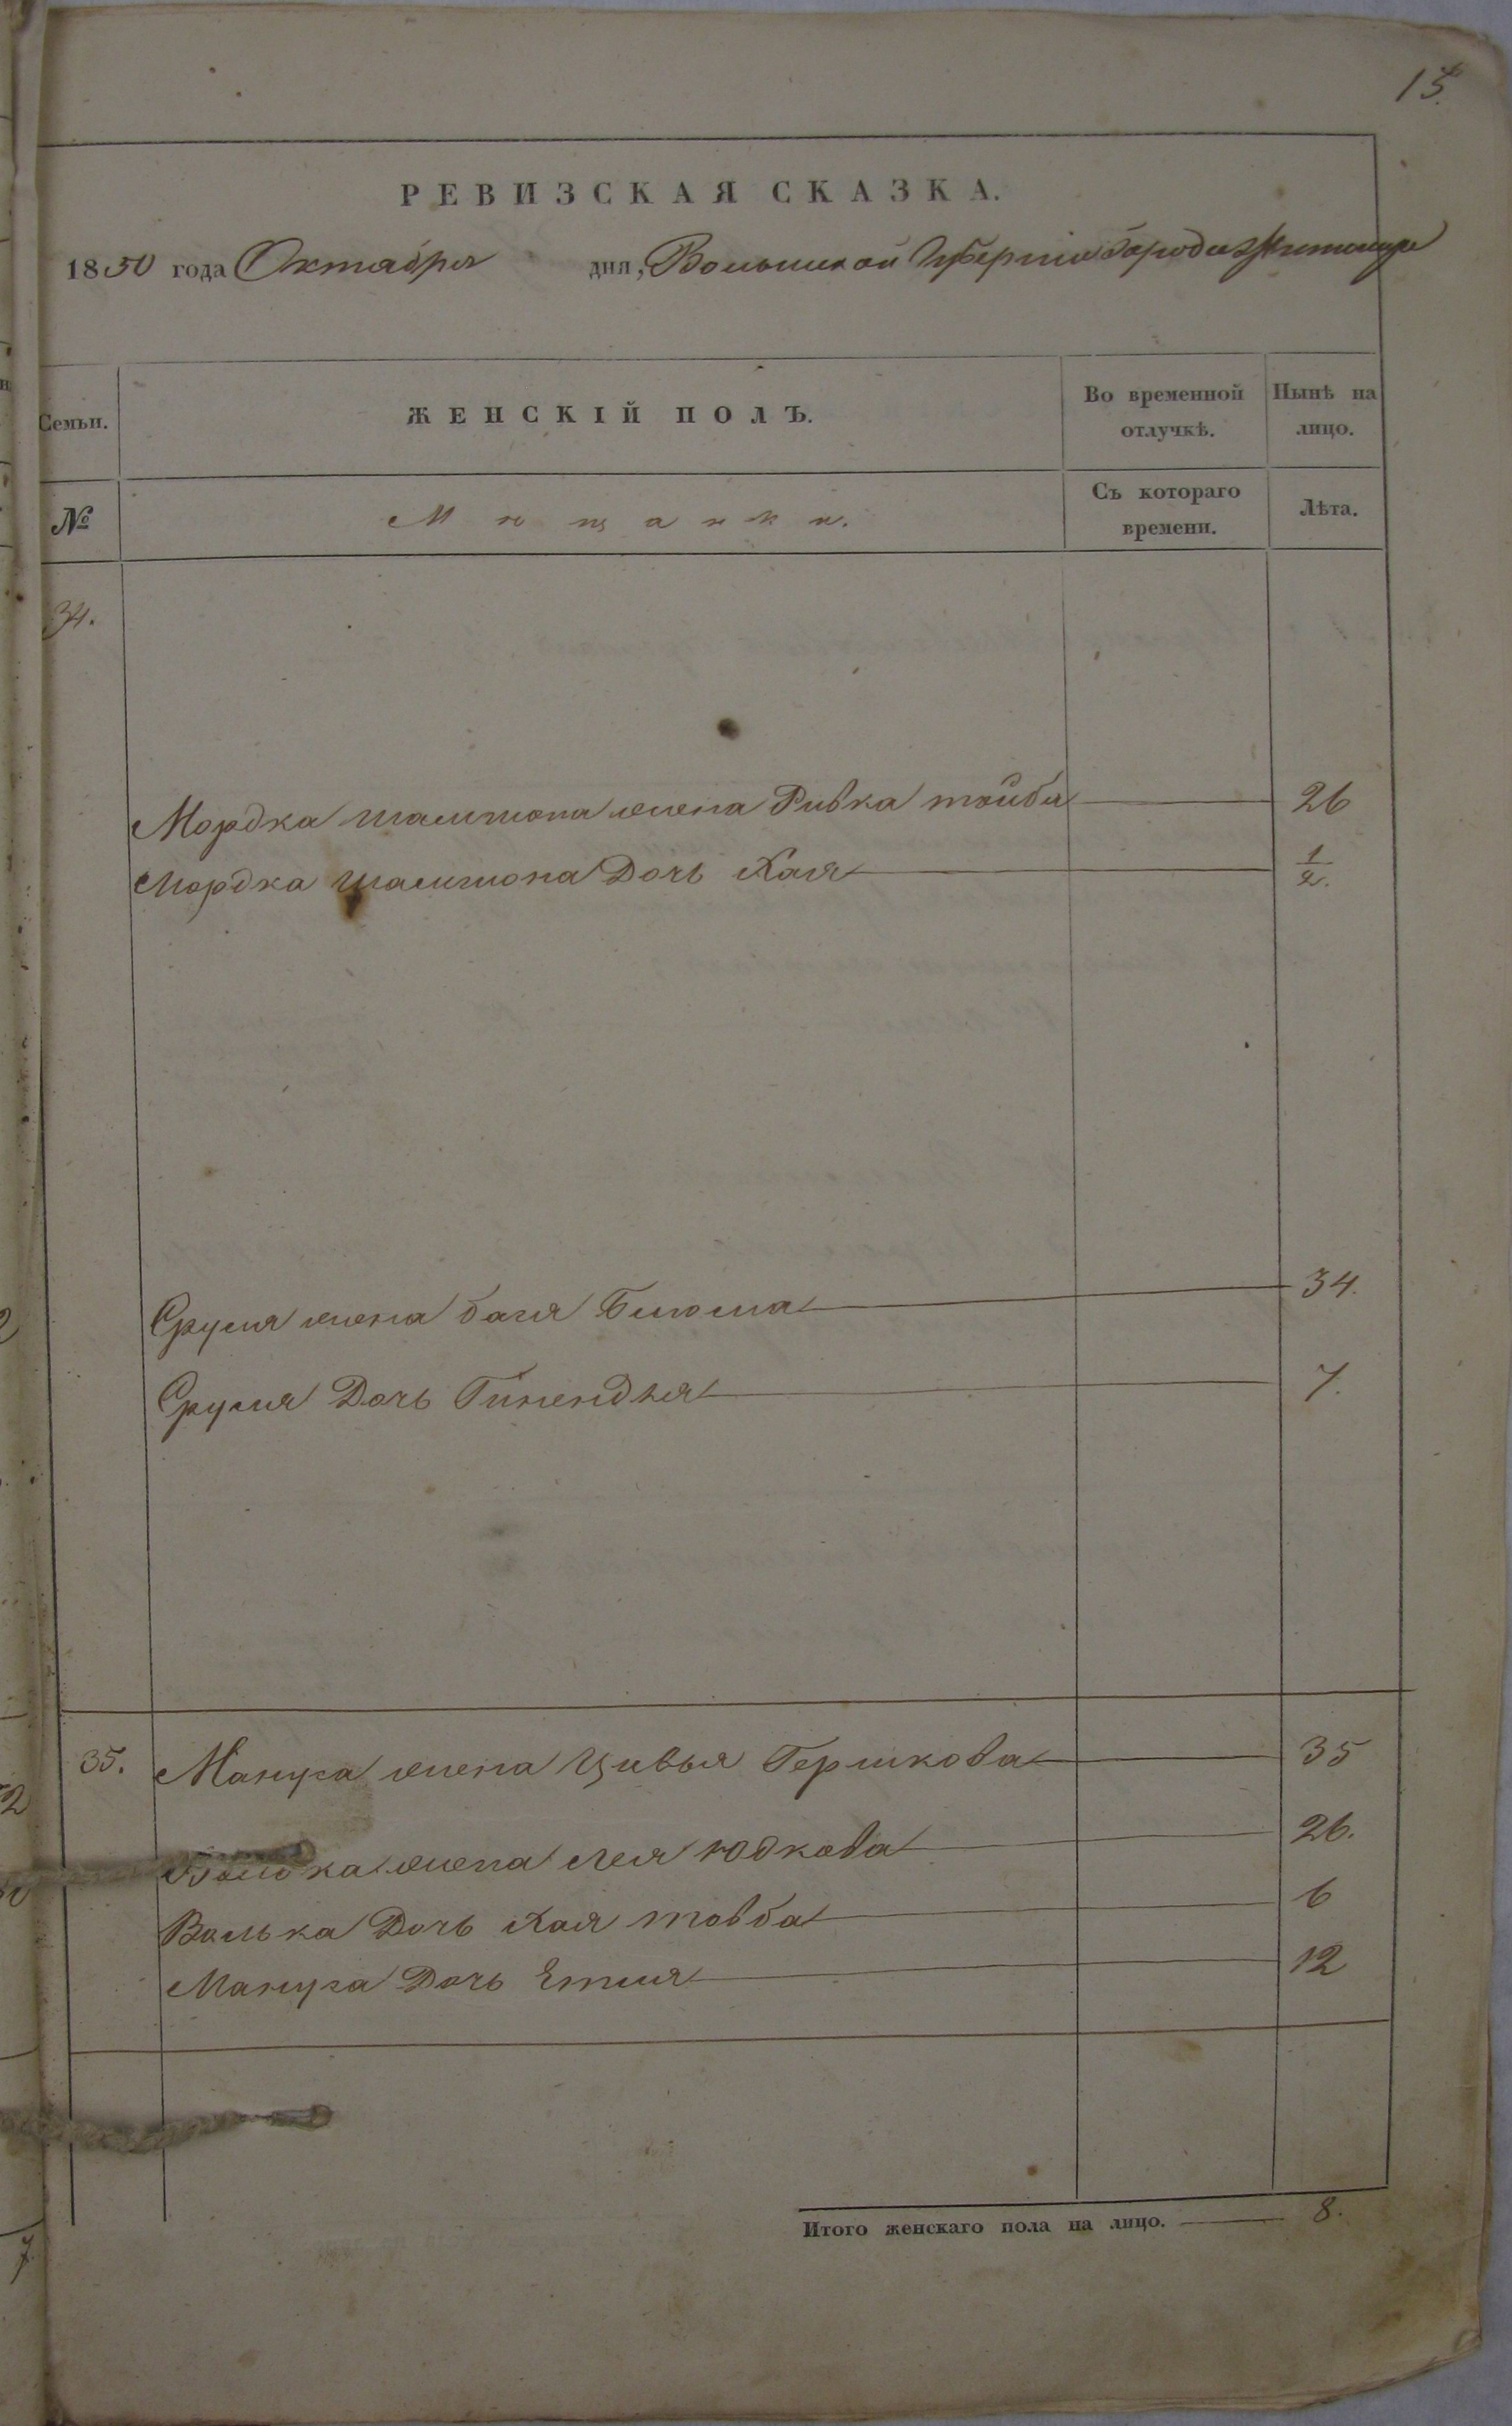 15.
РЕВИЗСКАЯ СКАЗКА.
1850 года Октября дня, Волынской Губерніи Города Житомира
Семьи.
ЖЕНСКІЙ ПОЛЪ.
Во временной отлучкѣ.
Нынѣ на лицо.
№
Мѣщанки.
Съ котораго времени.
Лѣта.
34.
Мордка шамшона жена Ривка тойба 26
Мордка шамшона Дочь Хая 1/2.
Сруля жена бася Блюма 34.
Сруля Дочь Гинендля 7.
35. Мануса жена Цивья Гершкова 35
Волька жена лея Юдкова 26.
Волька Дочь Хая товба 6
Мануса Дочь Етля 12
Итого женскаго пола на лицо. 8.